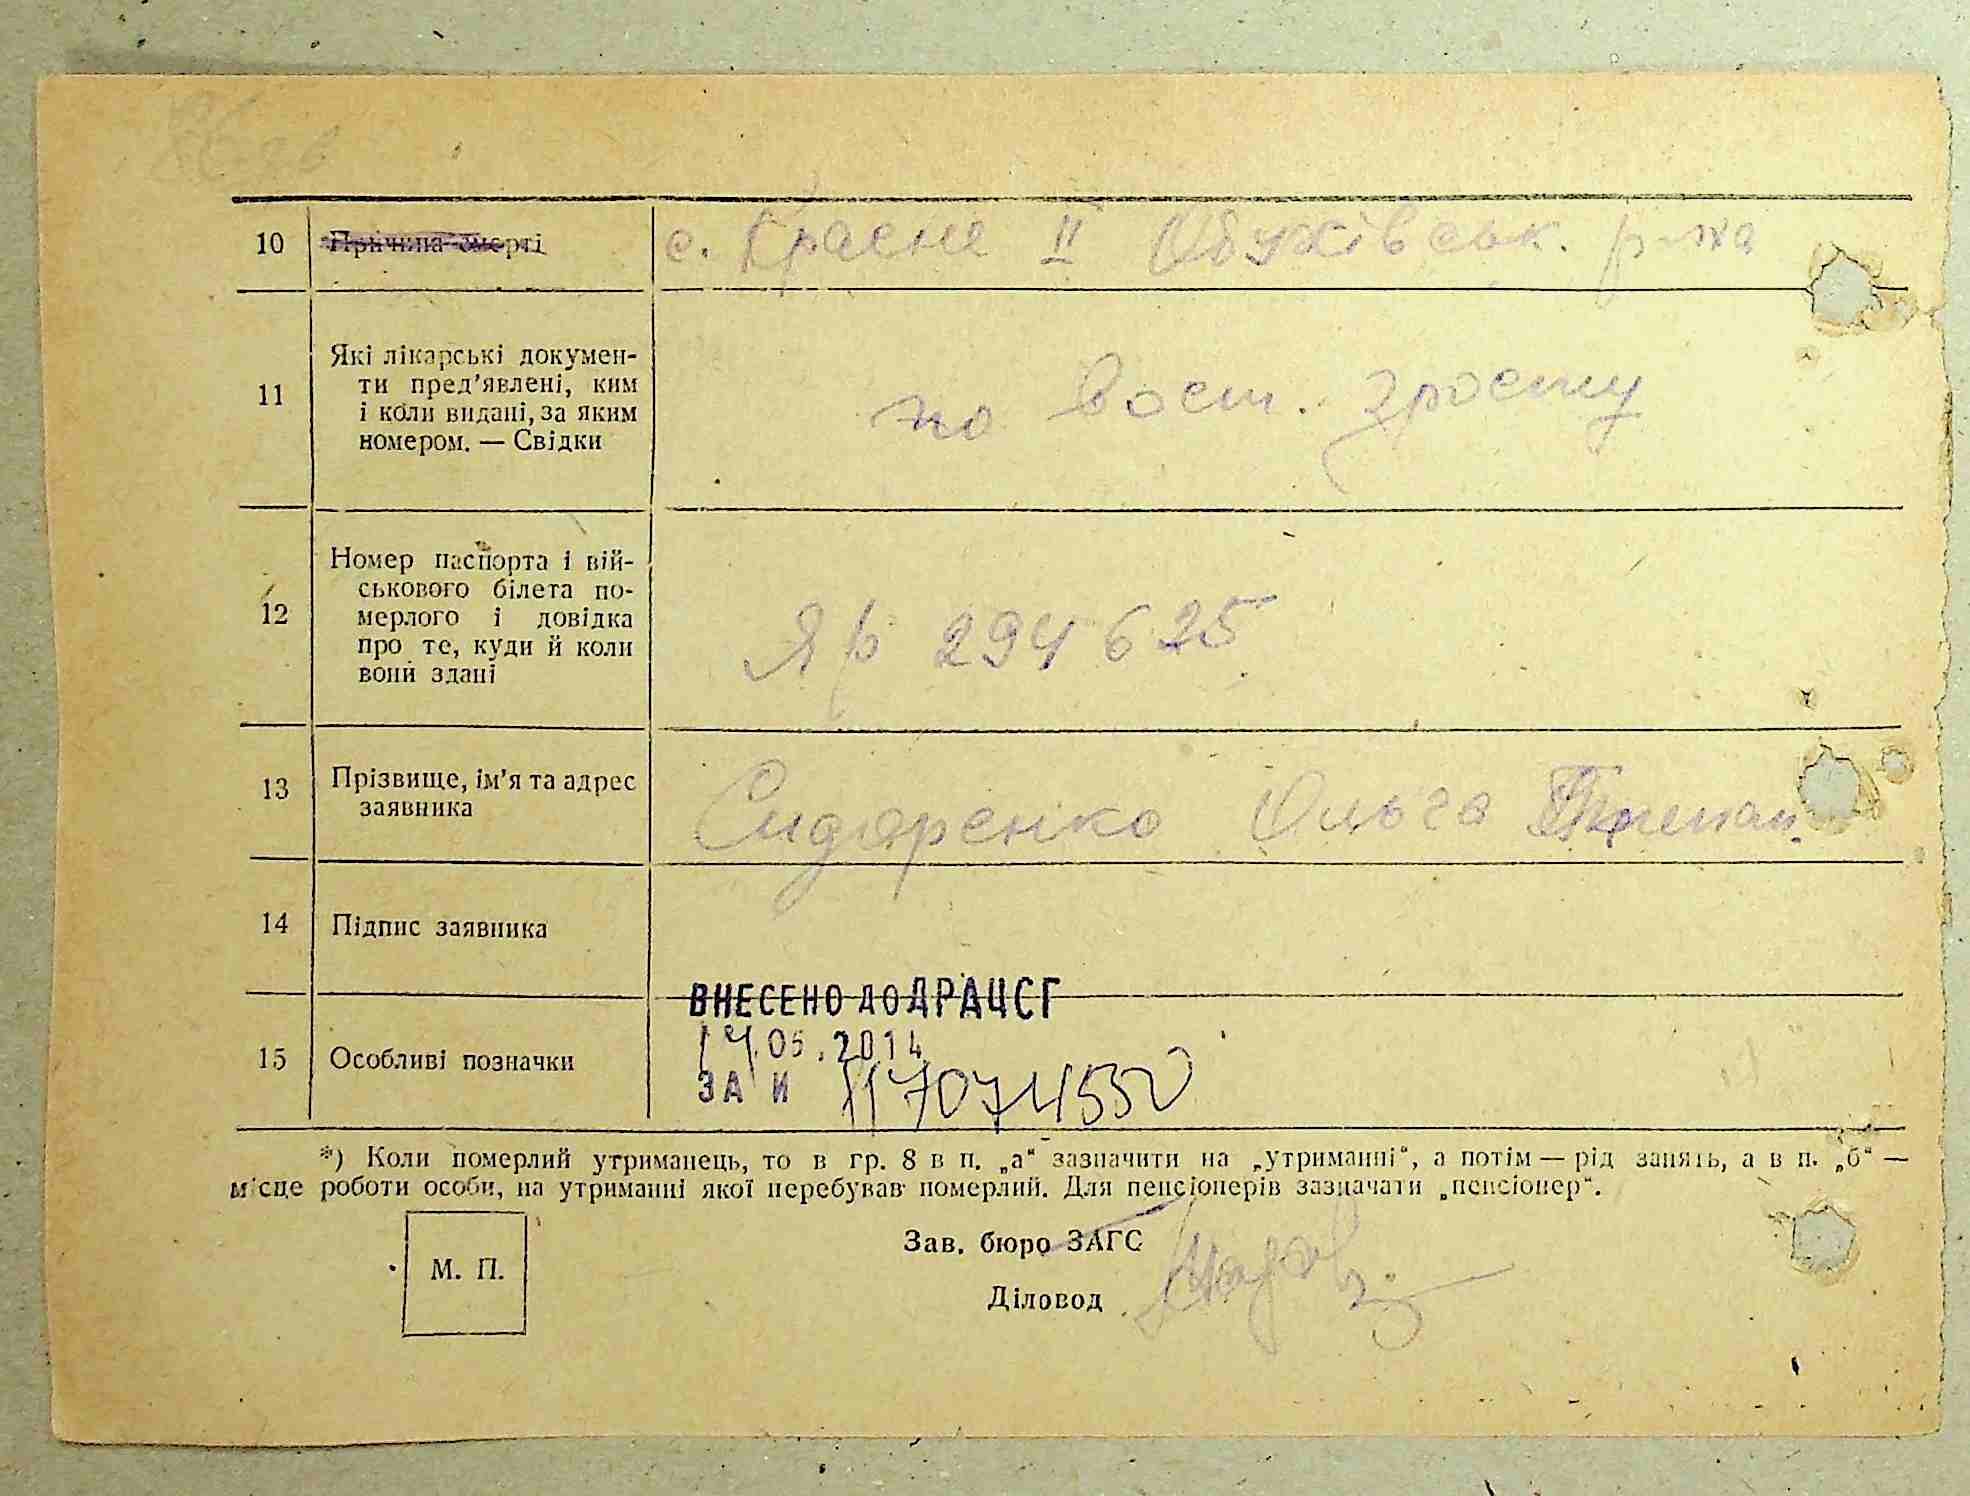 10 Причина смерті с. Красне II Обухівськ. р-на
11 Які лікарські докумен-
ти пред'явлені, ким
і коли видані, за яким
номером. — Свідки
по вост. зросту
12 Номер паспорта і вій-
ськового білета по-
мерлого і довідка
про те, куди й коли
вони здані
Яр 294625
13 Прізвище, ім'я та адрес
заявника
Сидоренко Ольга
14 Підпис заявника
ВНЕСЕНО ДО ДРАЦСГ
15 Особливі позначки
05.2014
ЗА И
*) Коли померлий утриманець, то в гр. 8 в п. „а“ зазначити на „утриманні“, а потім — рід занять, а в п. „б“ —
місце роботи особи, на утриманні якої перебував померлий. Для пенсіонерів зазначати „пенсіонер“.
М. П.
Зав. бюро ЗАГС
Діловод